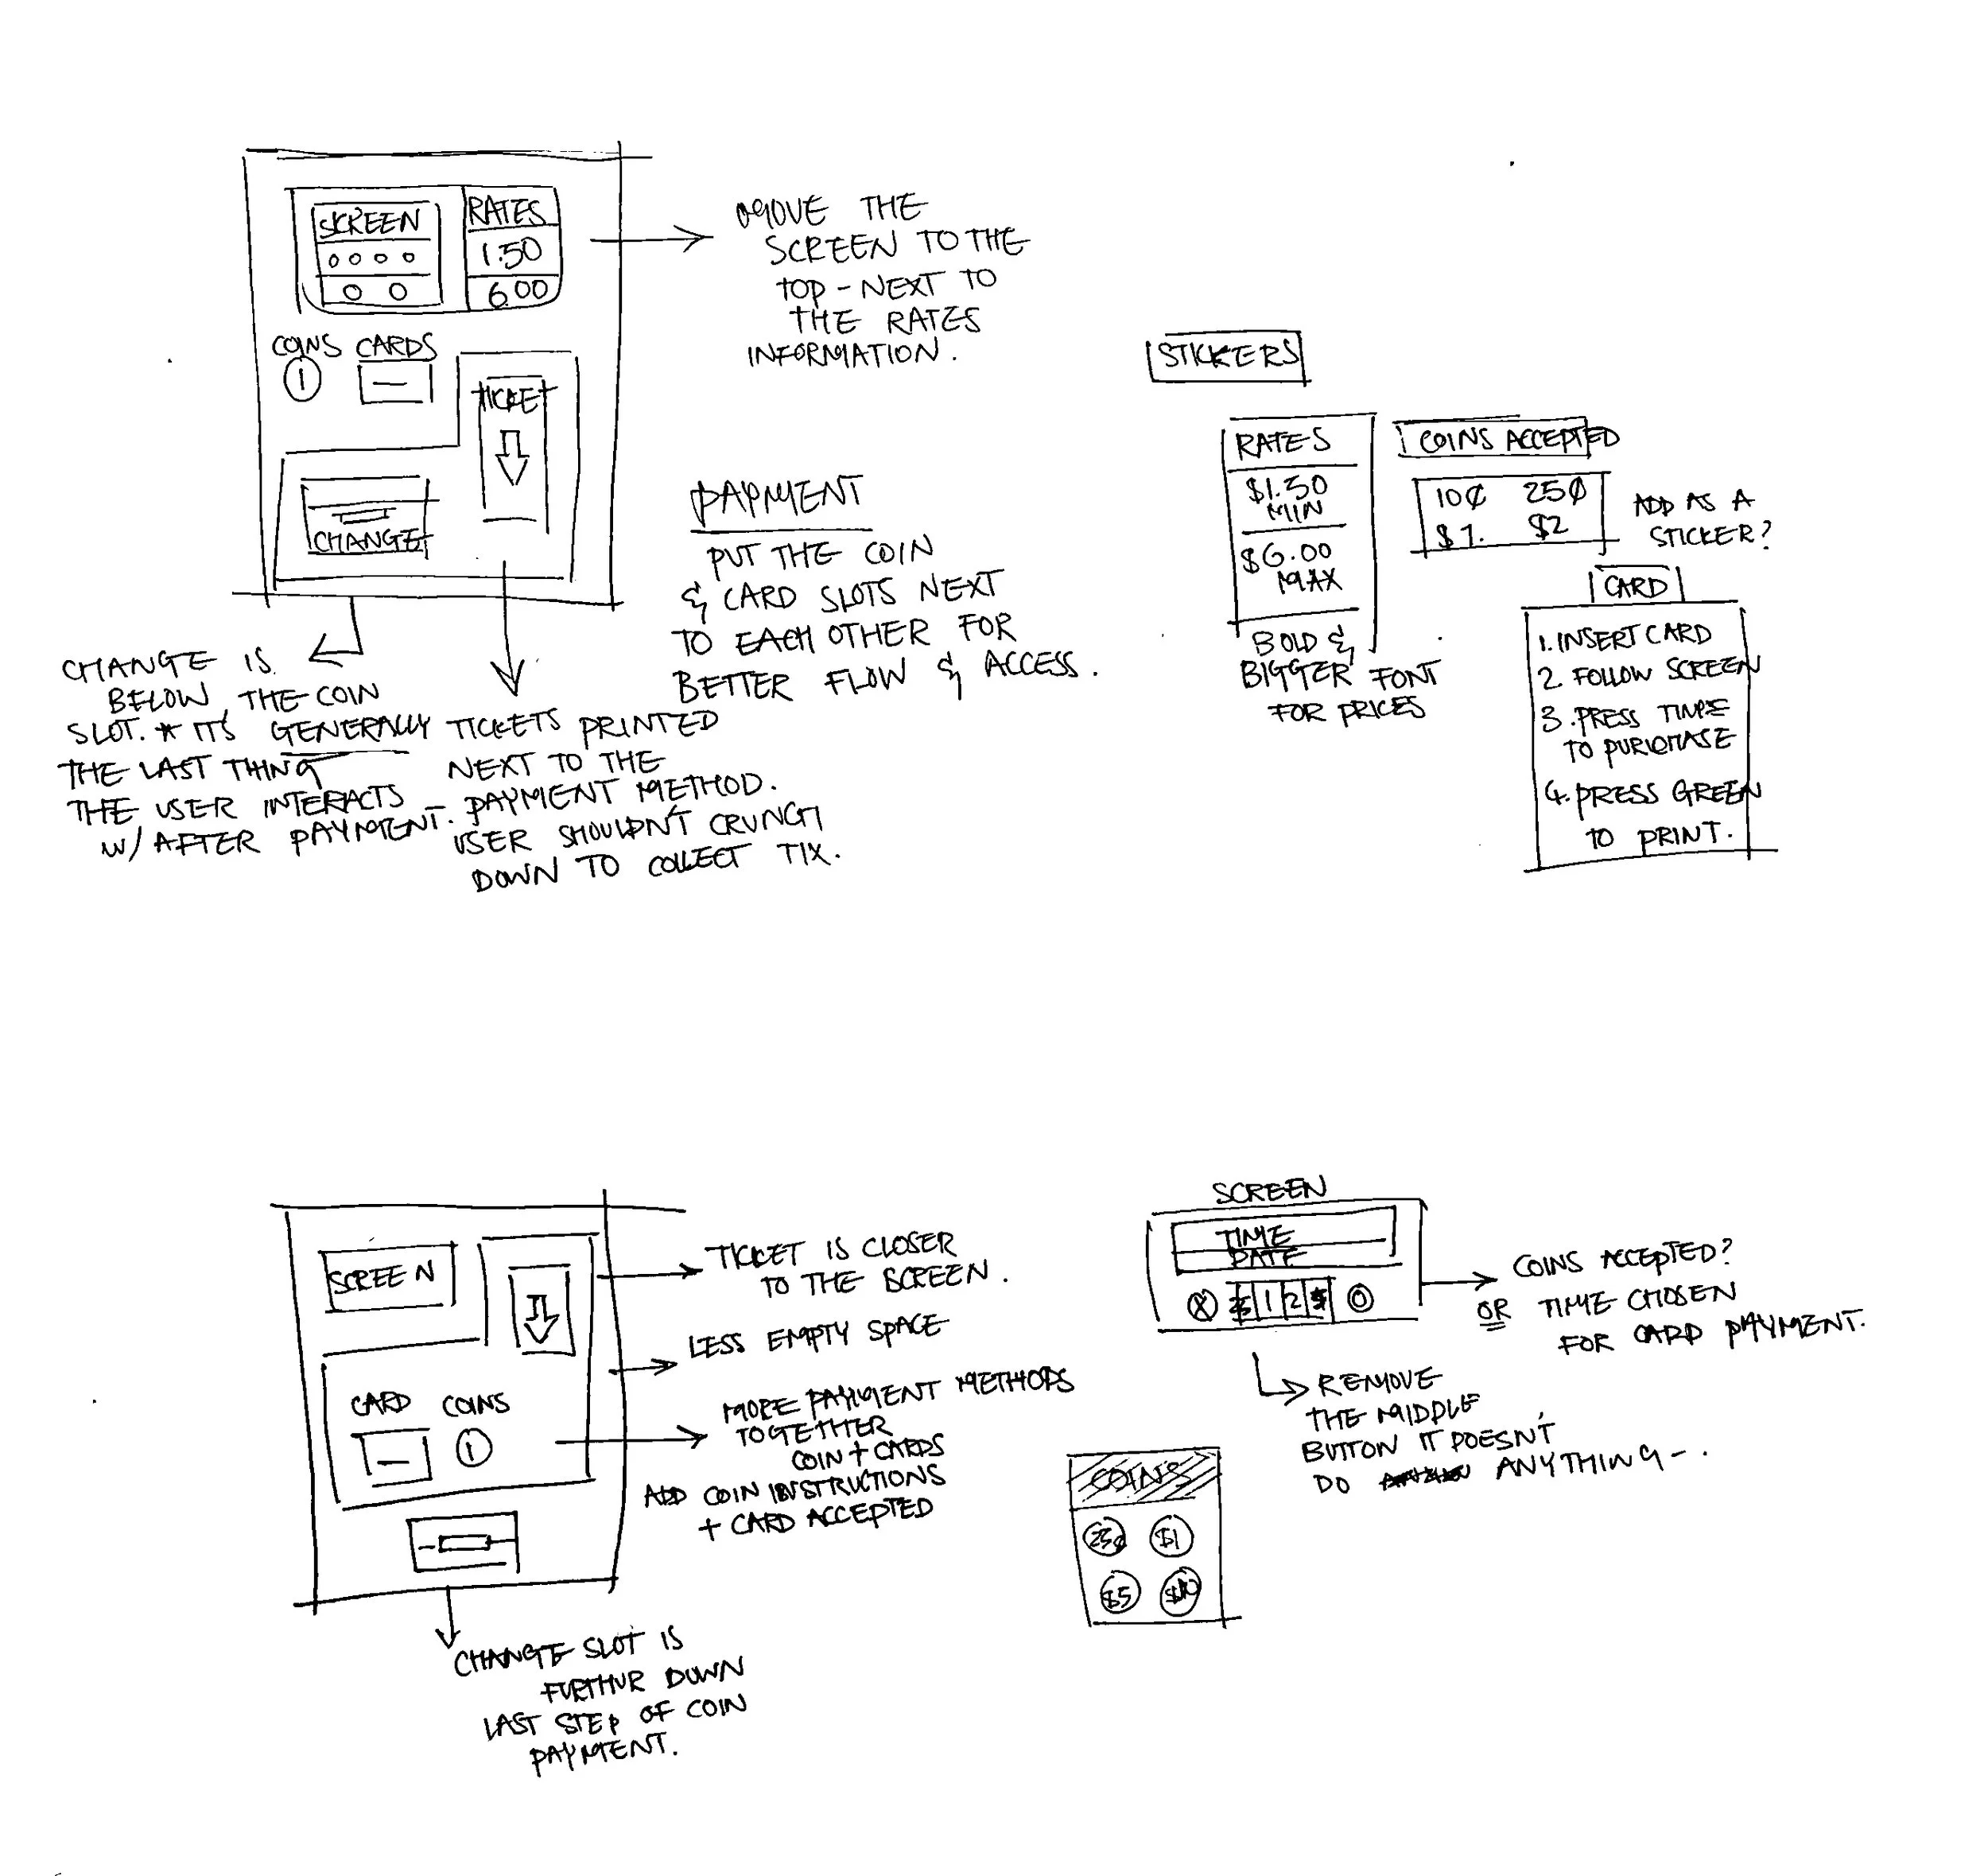 SCREEN
RATES
1.50
6.00
COINS CARDS
TICKET
CHANGE
MOVE THE
SCREEN TO THE
TOP - NEXT TO
THE RATES
INFORMATION.
PAYMENT
PUT THE COIN
& CARD SLOTS NEXT
TO EACH OTHER FOR
BETTER FLOW & ACCESS.
CHANGE IS
BELOW THE COIN
SLOT. * ITS GENERALLY
THE LAST THING
THE USER INTERACTS
W/ AFTER PAYMENT.
TICKETS PRINTED
NEXT TO THE
PAYMENT METHOD.
USER SHOULDN'T CRUNCH
DOWN TO COLLECT TIX.
STICKERS
RATES
$1.50
MIN
$6.00
MAX
BOLD &
BIGGER FONT
FOR PRICES
COINS ACCEPTED
10¢ 25¢
$1. $2
ADD AS A
STICKER?
CARD
1. INSERT CARD
2. FOLLOW SCREEN
3. PRESS TIME
TO PURCHASE
4. PRESS GREEN
TO PRINT.
SCREEN
CARD COINS
TICKET IS CLOSER
TO THE SCREEN.
LESS EMPTY SPACE
MORE PAYMENT METHODS
TOGETHER
COIN + CARDS
ADD COIN INSTRUCTIONS
+ CARD ACCEPTED
CHANGE SLOT IS
FURTHUR DOWN
LAST STEP OF COIN
PAYMENT.
SCREEN
TIME
DATE
X 1 2 0
COINS ACCEPTED?
OR TIME CHOSEN
FOR CARD PAYMENT.
REMOVE
THE MIDDLE
BUTTON IT DOESN'T
DO ANYTHING -.
COINS
25¢ $1
$5 $10